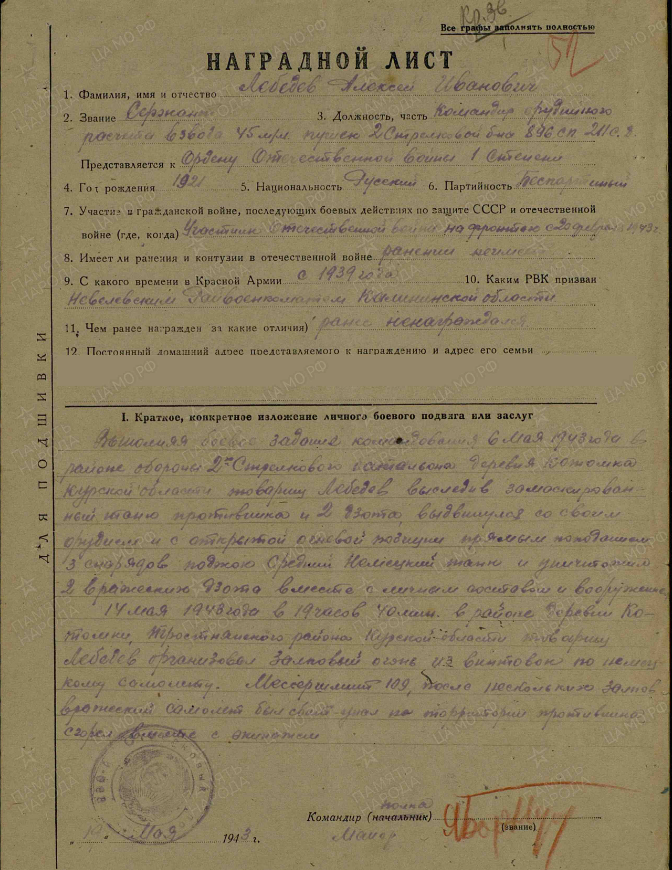 Кр. Зв
Все графы заполнять полностью
52
НАГРАДНОЙ ЛИСТ
1. Фамилия, имя и отчество Лебедев Алексей Иванович
2. Звание Сержант 3. Должность, часть Командир орудийного
расчета взвода 45 м/м пушек 2 Стрелковой б-на 896 сп 211 с.д.
Представляется к Ордену Отечественной войны 1 степени
4. Год рождения 1921 5. Национальность Русский 6. Партийность беспартийный
7. Участие в гражданской войне, последующих боевых действиях по защите СССР и отечественной
войне (где, когда) Участник Отечественной войны на фронтах с 20 февраля 1943 г
8. Имеет ли ранения и контузии в отечественной войне ранений не имеет
9. С какого времени в Красной Армии с 1939 года 10. Каким РВК призван
Невелевским Райвоенкоматом Калининской области
11. Чем ранее награжден (за какие отличия) ранее ненаграждался
12. Постоянный домашний адрес представляемого к награждению и адрес его семьи
ДЛЯ ПОДШИВКИ
I. Краткое, конкретное изложение личного боевого подвига или заслуг
Выполняя боевое задание командования 6 мая 1943 года в
районе обороны 2го Стрелкового батальона деревня Котомка
Курской области товарищ Лебедев выследив замаскирован-
ный танк противника и 2 дзота, выдвинулся со своим
орудием и с открытой огневой позиции прямым попаданием
3 снарядов поджог средний немецкий танк и уничтожил
2 вражеских дзота вместе с личным составом и вооружение
14 мая 1943 года в 19 часов 40 мин. в районе деревни Ко-
томки, Тростнанского района Курской области товарищ
Лебедев организовал залповый огонь из винтовок по немец-
кому самолету. Мессершмит 109, после нескольких залпов
вражеский самолет был сбит упал на территории противника
сгорел вместе с экипажем
19 Мая 1943 г.
Командир (начальник) полка
Майор
(звание)